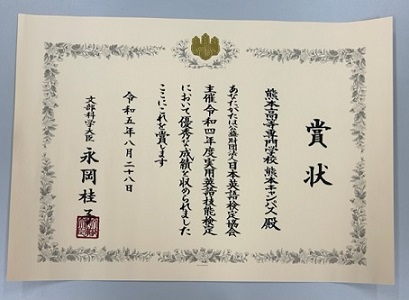 賞状
熊本高等専門学校 熊本キャンパス 殿
あなたがたは公益財団法人日本英語検定協会
主催令和四年度実用英語技能検定
において優秀な成績を収められました
ここにこれを賞します
令和五年八月二十八日
文部科学大臣 永岡桂子